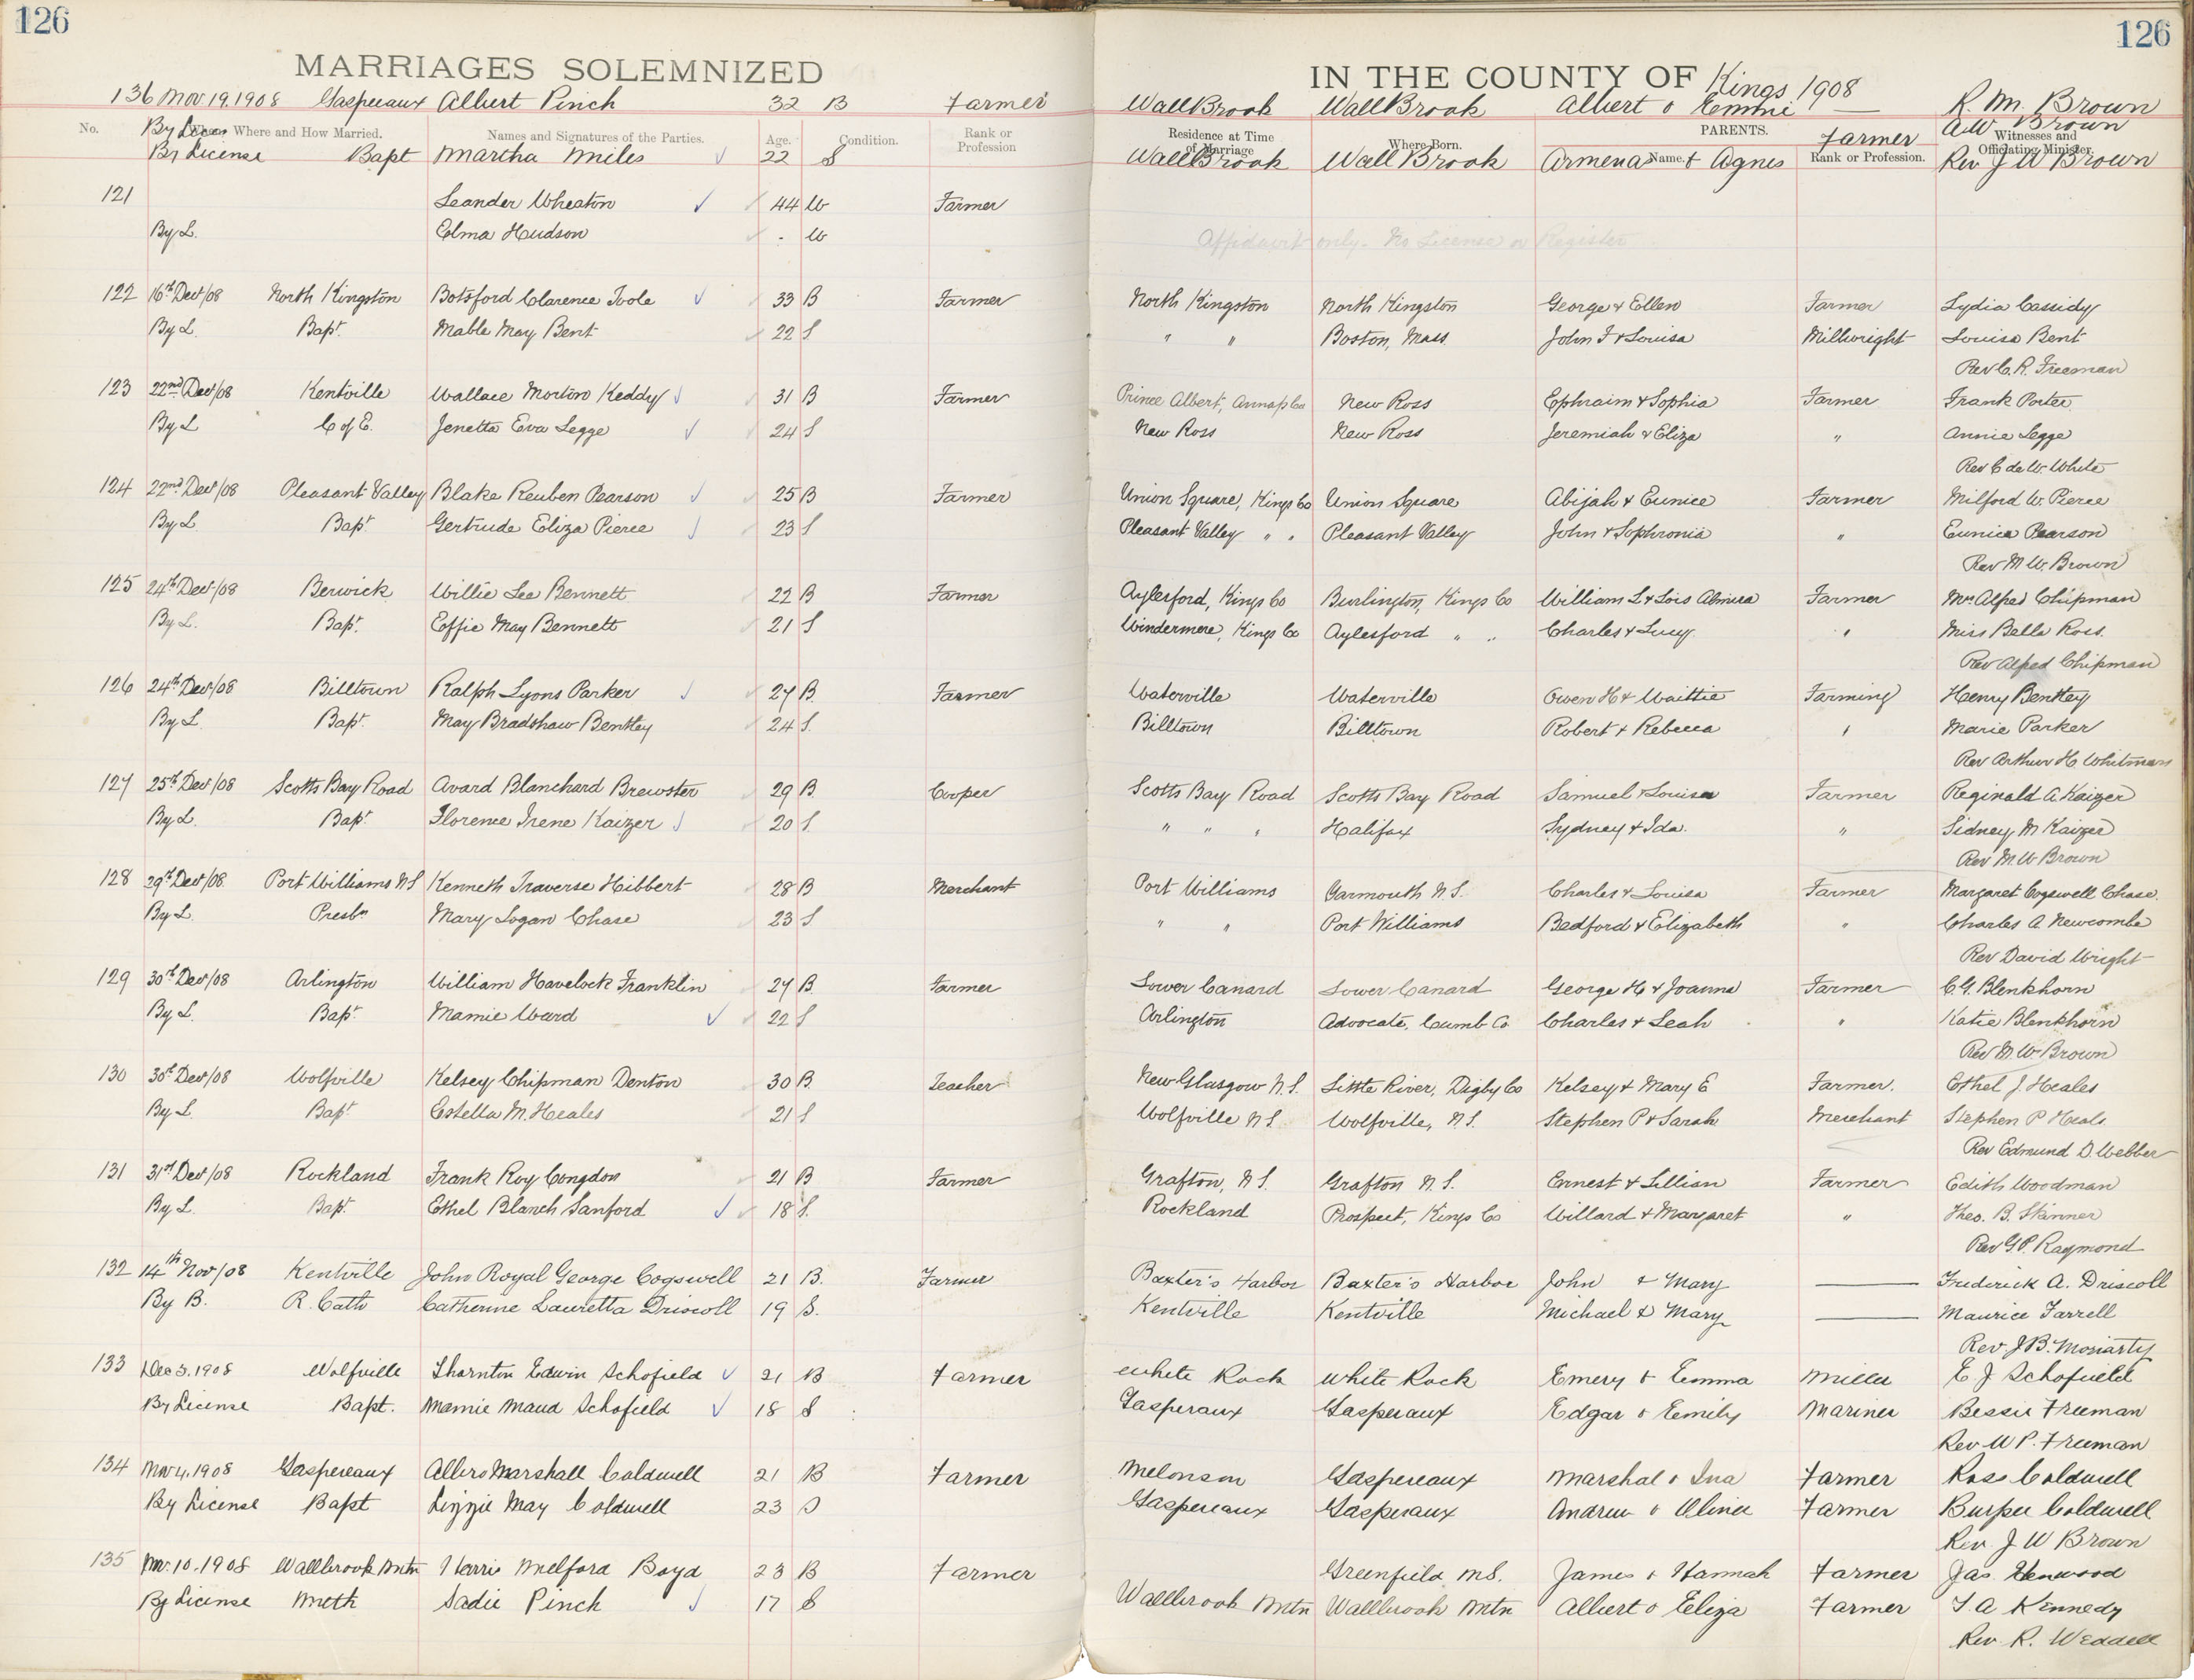 126 126
MARRIAGES SOLEMNIZED IN THE COUNTY OF Kings 1908
136 Nov 19. 1908 Gaspereaux Albert Pinch 32 B Farmer WallBrook WallBrook Albert & Emmie — R. M. Brown
By Licen A W Brown
No. When, Where and How Married. Names and Signatures of the Parties. Age. Condition. Rank or Profession Residence at Time of Marriage Where Born. PARENTS. Name. Rank or Profession. Witnesses and Officiating Minister.
Farmer
By License Bapt Martha Miles 22 S WallBrook Wall Brook Armenas & Agnes Rev J W Brown
121 Leander Wheaton 44 W Farmer
By L. Elma Hudson - W Affidavit only - No License or Register
122 16th Dec/08 North Kingston Botsford Clarence Toole 33 B Farmer North Kingston North Kingston George & Ellen Farmer Lydia Cassidy
By L. Bapt. Mable May Bent 22 S " " Boston, Mass. John F & Louisa Millwright Louisa Bent
Rev C. R. Freeman
123 22nd Dec/08 Kentville Wallace Morton Keddy 31 B Farmer Prince Albert, Annap Co New Ross Ephraim & Sophia Farmer Frank Porter
By L C of E. Jenetta Eva Legge 24 S New Ross New Ross Jeremiah & Eliza " Annie Legge
Rev C de W. White
124 22nd Dec/08 Pleasant Valley Blake Reuben Pearson 25 B Farmer Union Square, Kings Co Union Square Abijah & Eunice Farmer Milford W. Pierce
By L Bapt Gertrude Eliza Pierce 23 S Pleasant Valley " " Pleasant Valley John & Sophronia " Eunice Pearson
Rev M W. Brown
125 24th Dec/08 Berwick Willie Lee Bennett 22 B Farmer Aylesford, Kings Co Burlington, Kings Co William L & Lois Almira Farmer Mrs Alfred Chipman
By L. Bapt. Effie May Bennett 21 S Windermere, Kings Co Aylesford " " Charles & Lucy " Miss Bella Ross.
Rev Alfred Chipman
126 24th Dec/08 Billtown Ralph Lyons Parker 27 B. Farmer Waterville Waterville Owen H & Waittie Farming Henry Bentley
By L Bapt. May Bradshaw Bentley 24 S. Billtown Billtown Robert & Rebecca " Marie Parker
Rev Arthur H. Whitman
127 25th Dec/08 Scotts Bay Road Avard Blanchard Brewster 29 B Cooper Scotts Bay Road Scotts Bay Road Samuel & Louisa Farmer Reginald A. Kaizer
By L. Bapt. Florence Irene Kaizer 20 S. " " " Halifax Sydney & Ida. " Sidney M Kaizer
Rev M. W Brown
128 29th Dec/08 Port Williams N S Kenneth Traverse Hibbert 28 B Merchant Port Williams Yarmouth N. S. Charles & Louisa Farmer Margaret Cogswell Chase.
By L. Presbn Mary Logan Chase 23 S " " Port Williams Bedford & Elizabeth " Charles A Newcombe
Rev David Wright
129 30th Dec/08 Arlington William Havelock Franklin 27 B. Farmer Lower Canard Lower Canard George H & Joanna Farmer C. G. Blenkhorn
By L. Bapt. Mamie Ward 22 S Arlington Advocate, Cumb Co Charles & Leah " Katie Blenkhorn
Rev M. W. Brown
130 30th Dec/08 Wolfville Kelsey Chipman Denton 30 B. Teacher New Glasgow N. S. Little River, Digby Co Kelsey & Mary E Farmer. Ethel J. Heales
By L. Bapt Estella M. Heales 21 S Wolfville N S. Wolfville, N S. Stephen P & Sarah Merchant Stephen P Heals
Rev Edmund D. Webber
131 31st Dec/08 Rockland Frank Roy Congdon 21 B Farmer Grafton, N S. Grafton N. S. Ernest & Lillian Farmer Edith Woodman
By L. Bapt. Ethel Blanch Sanford 18 S. Rockland Prospect, Kings Co Willard & Margaret " Theo. B. Skinner
Rev G. P. Raymond
132 14th Nov/08 Kentville John Royal George Cogswell 21 B. Farmer Baxter's Harbor Baxter's Harbor John & Mary — Frederick A. Driscoll
By B. R. Cath Catherine Lauretta Driscoll 19 S. Kentville Kentville Michael & Mary — Maurice Farrell
Rev. J. B. Moriarty
133 Dec 3. 1908 Wolfville Thornton Edwin Schofield 21 B Farmer White Rock White Rock Emery & Emma Miller E. J Schofield
By License Bapt. Mamie Maud Schofield 18 S Gasperaux Gasperaux Edgar & Emily Mariner Bessie Freeman
Rev W P. Freeman
134 Nov 4. 1908 Gaspereaux Albers Marshall Coldwell 21 B Farmer Melonson Gaspereaux Marshal & Ina Farmer Ross Coldwell
By License Bapt Lizzie May Coldwell 23 S Gaspereaux Gasperaux Andrew & Farmer Burpee Coldwell
Rev. J W Brown
135 Nov. 10. 1908 Wallbrook Mtn Harris Melford Boyd 23 B Farmer Greenfield N S. James & Hannah Farmer Jas. Henwood
By License Meth Sadie Pinch 17 S Wallbrook Mtn Wallbrook Mtn Albert & Eliza Farmer T. A Kennedy
Rev. R. Weddell